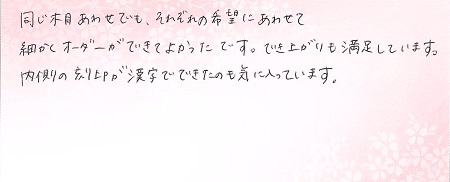 同じ木目あわせでも、それぞれの希望にあわせて
細かくオーダーができてよかったです。でき上がりも満足しています。
内側の刻印が漢字でできたのも気に入っています。